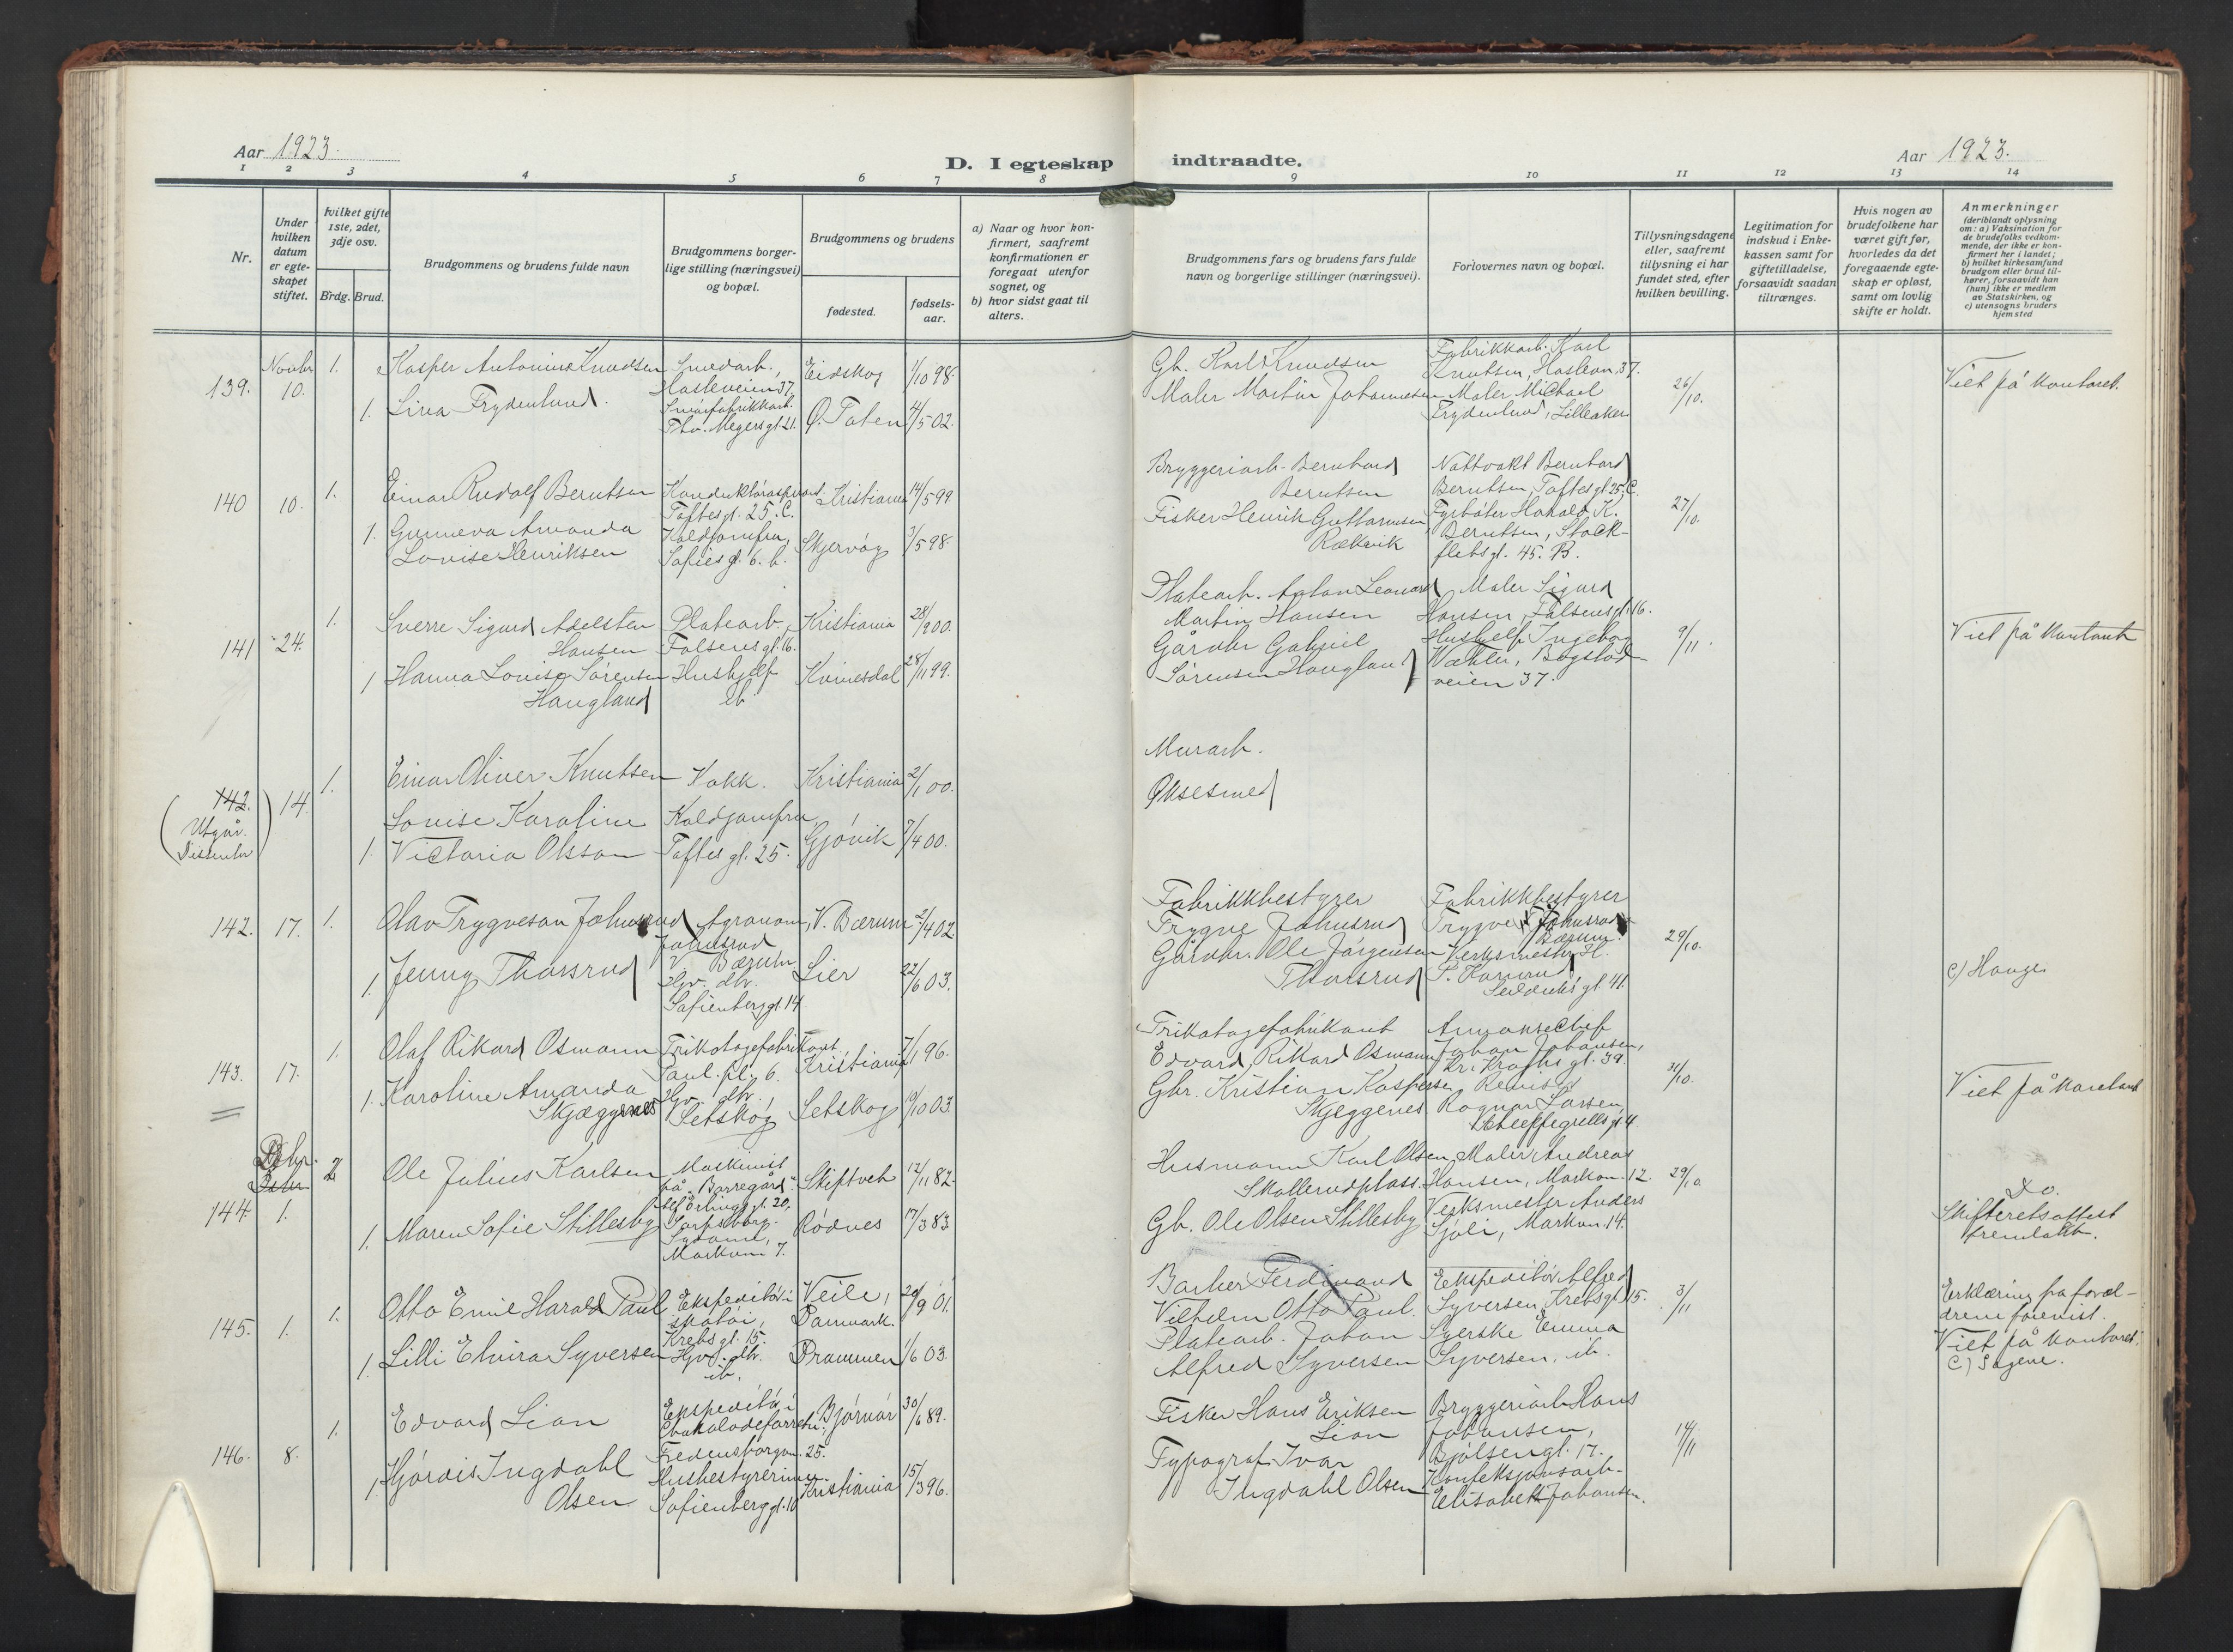 Aar 1923.
D. I egteskap indtraadte.
Aar 1923.
1 2 3 4 5 6 7 8 9 10 11 12 13 14
Nr.
Under hvilken datum er egteskapet stiftet.
hvilket gifte 1ste, 2det, 3dje osv.
Brdg. Brud.
Brudgommens og brudens fulde navn
Brudgommens borgerlige stilling (næringsvei) og bopæl.
Brudgommens og brudens
fødested.
fødselsaar.
a) Naar og hvor konfirmert, saafremt konfirmationen er foregaat utenfor sognet, og
b) hvor sidst gaat til alters.
Brudgommens fars og brudens fars fulde navn og borgerlige stillinger (næringsvei).
Forlovernes navn og bopæl.
Tillysningsdagene eller, saafremt tillysning ei har fundet sted, efter hvilken bevilling.
Legitimation for indskud i Enkekassen samt for giftetilladelse, forsaavidt saadan tiltrænges.
Hvis nogen av brudefolkene har været gift før, hvorledes da det foregaaende egteskap er opløst, samt om lovlig skifte er holdt.
Anmerkninger
(deriblandt oplysning om: a) Vaksination for de brudefolks vedkommende, der ikke er konfirmert her i landet;
b) hvilket kirkesamfund brudgom eller brud tilhører, forsaavidt han (hun) ikke er medlem av Statskirken, og
c) utensogns bruders hjemsted
139. Novbr 10.
1. Kasper Antonius Knudsen
Smedarb., Hasleveien 37.
Eidskog 1/10 98.
Gb. Karl Knudsen
Fabrikkarb. Karl Knutsen, Haslevn. 37.
26/10.
Viet på kontoret.
1. Lina Frydenlund.
Thv. Meyersgt. 21.
Ø. Toten 4/5 02.
Maler Martin Johannesen
Maler Michael Frydenlund, Lilleaker
140 10.
1. Einar Rudolf Berntsen
Konduktøraspirant. Toftesgt. 25. C.
Kristiania 14/5 99
Bryggeriarb. Bernhard Berntsen
Nattvakt Bernhard Berntsen, Toftesgt 25. C.
27/10.
1. Gunneva Amanda Lovise Henriksen
Koldjomfru, Sofiesgt. 6. b.
Skjervøy 3/5 98.
Fisker Henrik Guttormsen Rækvik
Fyrbøter Harald K. Berntsen, Stockflets gt. 45. B.
141 24.
1. Sverre Sigurd Adelsten Hansen
Platearb. Falsens gt. 16.
Kristiania 28/9 00.
Platearb. Anton Leonard Martin Hansen
Maler Sigurd Hansen, Falsensgt. 16.
9/11.
Viet på kontoret
1 Hanna Lovise Sørensen Haugland
Hushjelp ib
Kvinesdal 28/11 99.
Gårdbr Gabriel Sørensen Haugland
Hushjelp Ingeborg Væhler, Bogstadveien 37.
(142. Utgår. Dissenter) 14
1. Einar Oliver Knutsen
Kokk.
Kristiania 2/1 00.
Murarb.
1. Lovise Karoline Victoria Olsson
Koldjomfru, Toftes gt. 25.
Gjøvik 7/4 00.
Øksesmed
142. 17.
1. Olav Trygveson Johnsrud
Agronom, Johnsrud V. Bærum
V. Bærum 2/4 02.
Fabrikkbestyrer Trygve Johnsrud
Fabrikkbestyrer Trygve Johnsrud Bærum.
29/10.
1. Jenny Thorsrud
Hjv. dtr. Sofienberggt. 14.
Lier 22/6 03.
Gårdbr. Ole Jørgensen Thorsrud
Verksmester H. P.
c) Hauge
143. 17.
1. Olaf Rikard Osmann
Trikotagefabrikant, Paul. pl. 6.
Kristiania 7/1 96.
Trikotagefabrikant Edvard Rikard Osmann
Annonsechef Johan Johansen, Kr. Kroghs gt. 39.
31/10.
Viet på kontoret
1. Karoline Amanda Skjæggenes
Hjv. dtr. Setskog
Setskog 19/10 03.
Gbr. Kristian Kaspersen Skjeggenes
Ragnar Larsen
144. Debr. 1.
2 Ole Julius Karlsen
Maskinist på "Borregård", 20, Sarpsborg.
Skiptvet 12/11 82.
Husmann Karl Olsen Skollerudplass.
Maler Andreas Hansen, Markvn. 12.
29/10
Do.
Skifteretsattest fremlakt.
1. Maren Sofie Stillesby
Sydame, Markvn 7.
Rødnes 17/3 83
Gb. Ole Olsen Stillesby
Verksmester Anders Sjøli, Markvn. 14.
145. 1.
1. Otto Emil Harald Paul
Ekspeditør i skotøi, Krebs gt. 15.
Veile, Danmark. 20/9 01.
Barber Ferdinand Vilhelm Otto Paul.
Ekspeditør Alfred Syversen, Krebsgt. 15.
3/11
Erklæring fra forældrene forevist.
Viet på kontoret.
C) Sagene.
1. Lilli Elvira Syversen
Hjv. dtr. ib.
Drammen 1/6 03.
Platearb. Johan Alfred Syversen
Syerske Emma Syversen, ib.
146. 8.
1. Edvard Lian
Ekspeditør i Chokoladeforretn. Fredensborgvn. 25.
Bjørnør 30/6 89.
Fisker Hans Eriksen Lian
Bryggeriarb Hans Johansen, Bjølsengt. 17.
14/11
1. Hjørdis Ingdahl Olsen
Husbestyrerinne. Sofienberggt. 10
Kristiania 15/3 96.
Typograf Ivar Ingdahl Olsen
Konfeksjonsarb. Elisabeth Johansen.